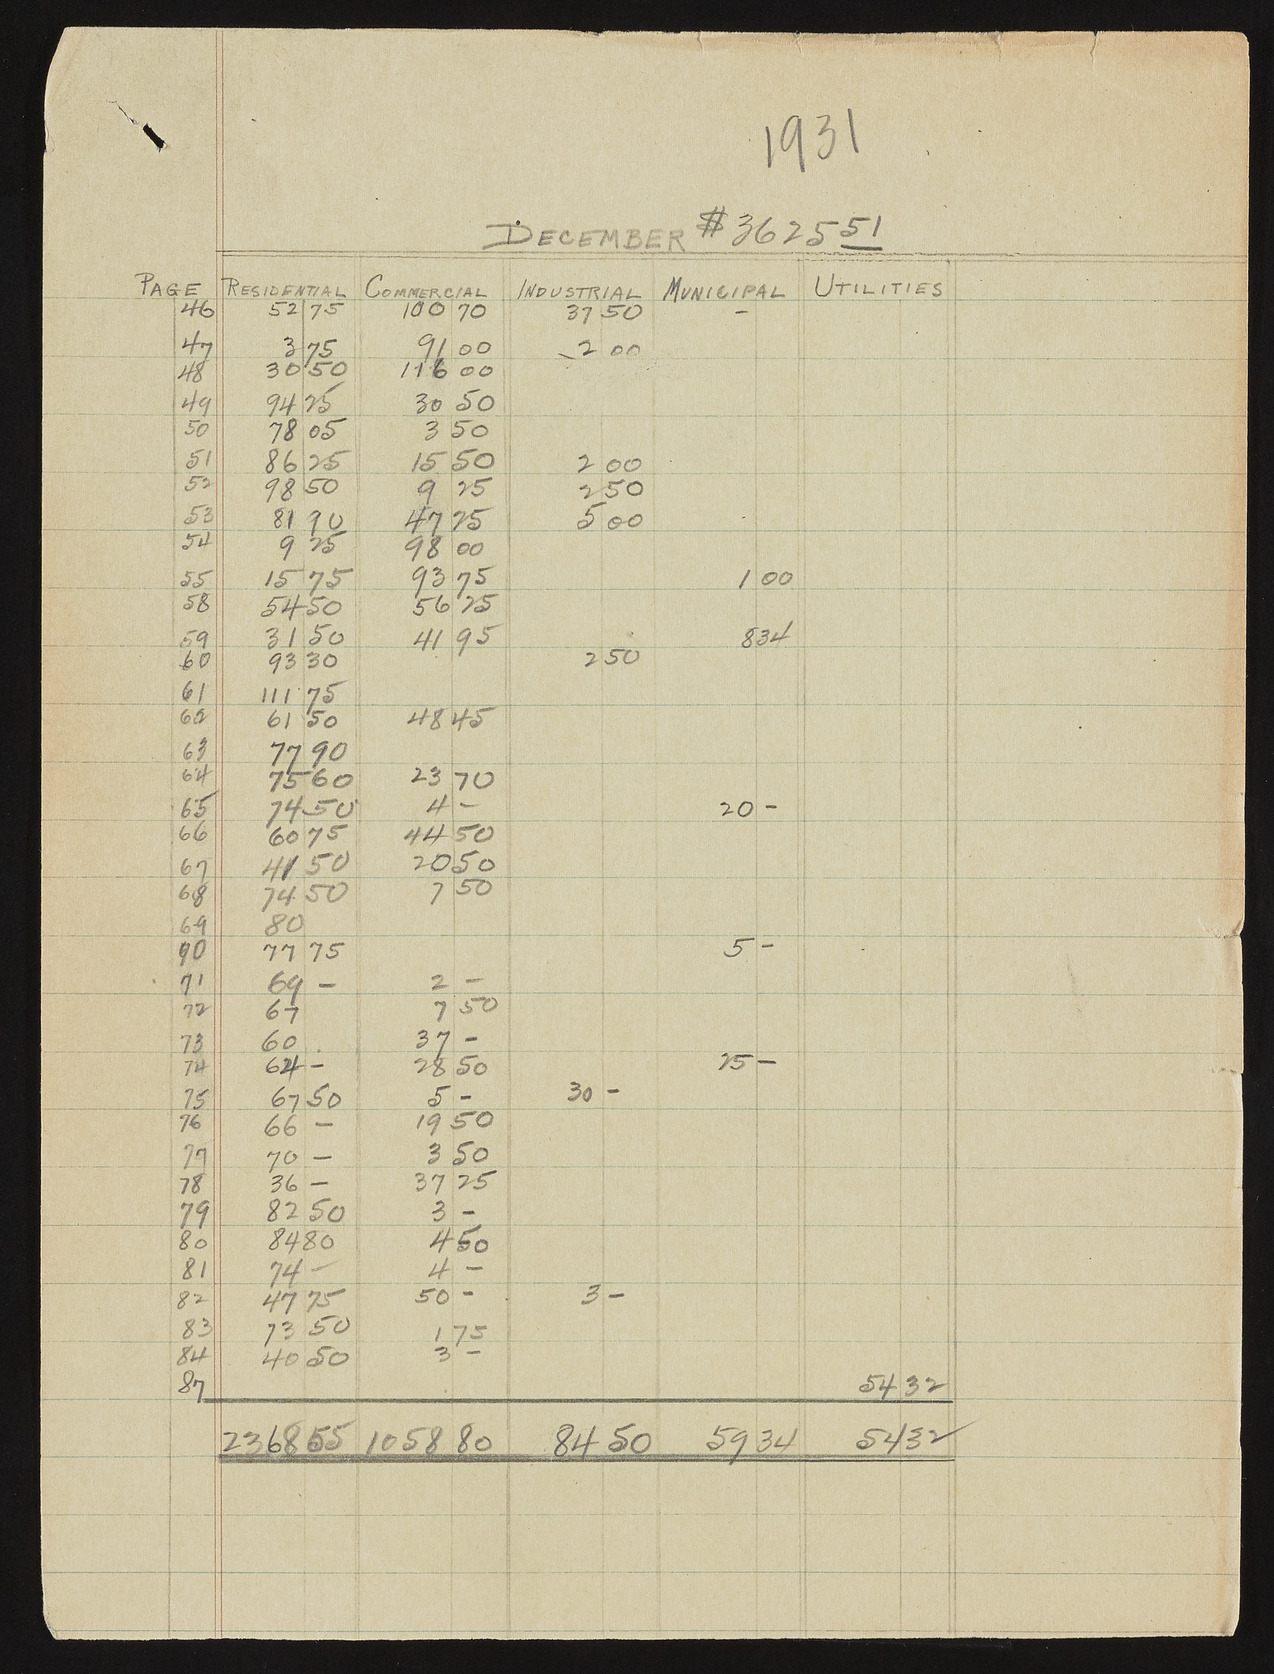 1931
DECEMBER #3625 51
PAGE RESIDENTIAL COMMERCIAL INDUSTRIAL MUNICIPAL UTILITIES
46 52 75 100 70 37 50 -
47 3 75 91 00 2 00
48 30 50 116 00
49 94 25 30 50
50 78 05 3 50
51 86 25 15 50 2 00
52 98 50 9 25 2 50
53 81 90 47 25 5 00
54 9 25 98 00
55 15 75 93 75 1 00
58 54 50 56 25
59 31 50 41 95 8 34
60 93 30 2 50
61 111 75
62 61 50 48 45
63 77 90
64 75 60 23 70
65 74 50 4 - 20 -
66 60 75 44 50
67 41 50 20 50
68 74 50 7 50
69 80
90 77 75 5 -
71 69 - 2 -
72 67 7 50
73 60 37 -
74 64 - 28 50 25 -
75 67 50 5 - 30 -
76 66 - 19 50
77 70 - 3 50
78 36 - 37 25
79 82 50 3 -
80 84 80 4 50
81 74 - 4 -
82 47 75 50 - 3 -
83 73 50 1 75
84 40 50 3 -
87 54 32
2368 55 1058 80 84 50 59 34 54 32